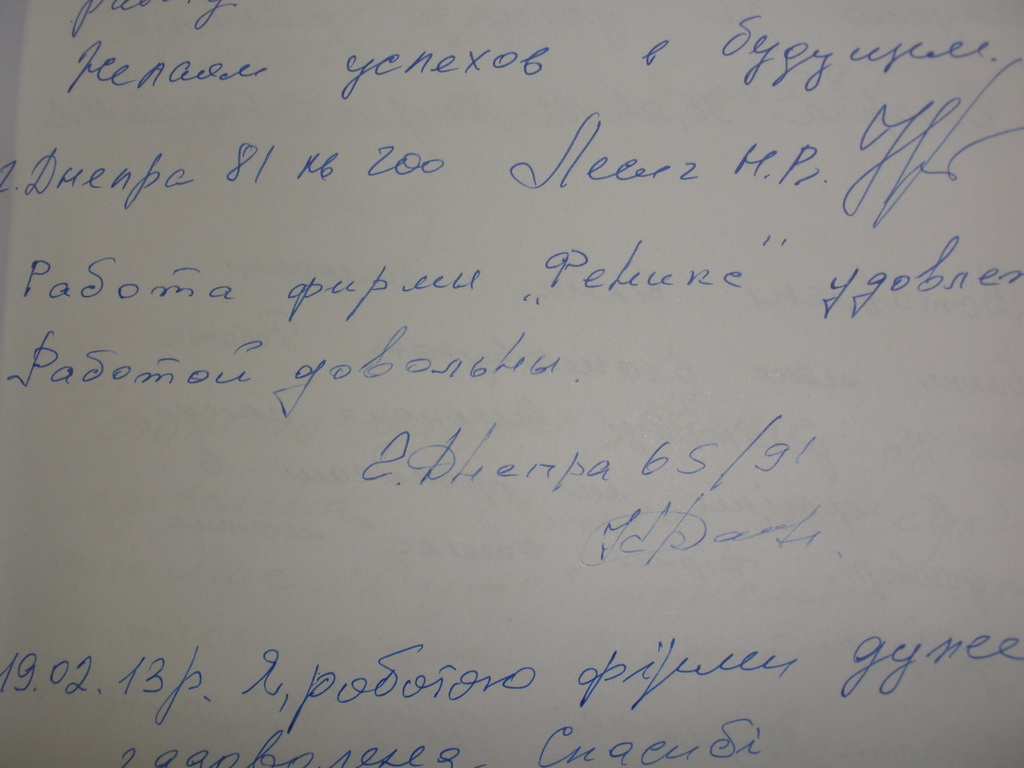 работу
Желаем успехов в будущем.
г. Днепра 81 кв 200 Н.В.
Работа фирмы „Феникс" удовлет
Работой довольны.
г. Днепра 65/91
19.02.13р. Я, роботою фірми дуже
задоволена. Спасибі